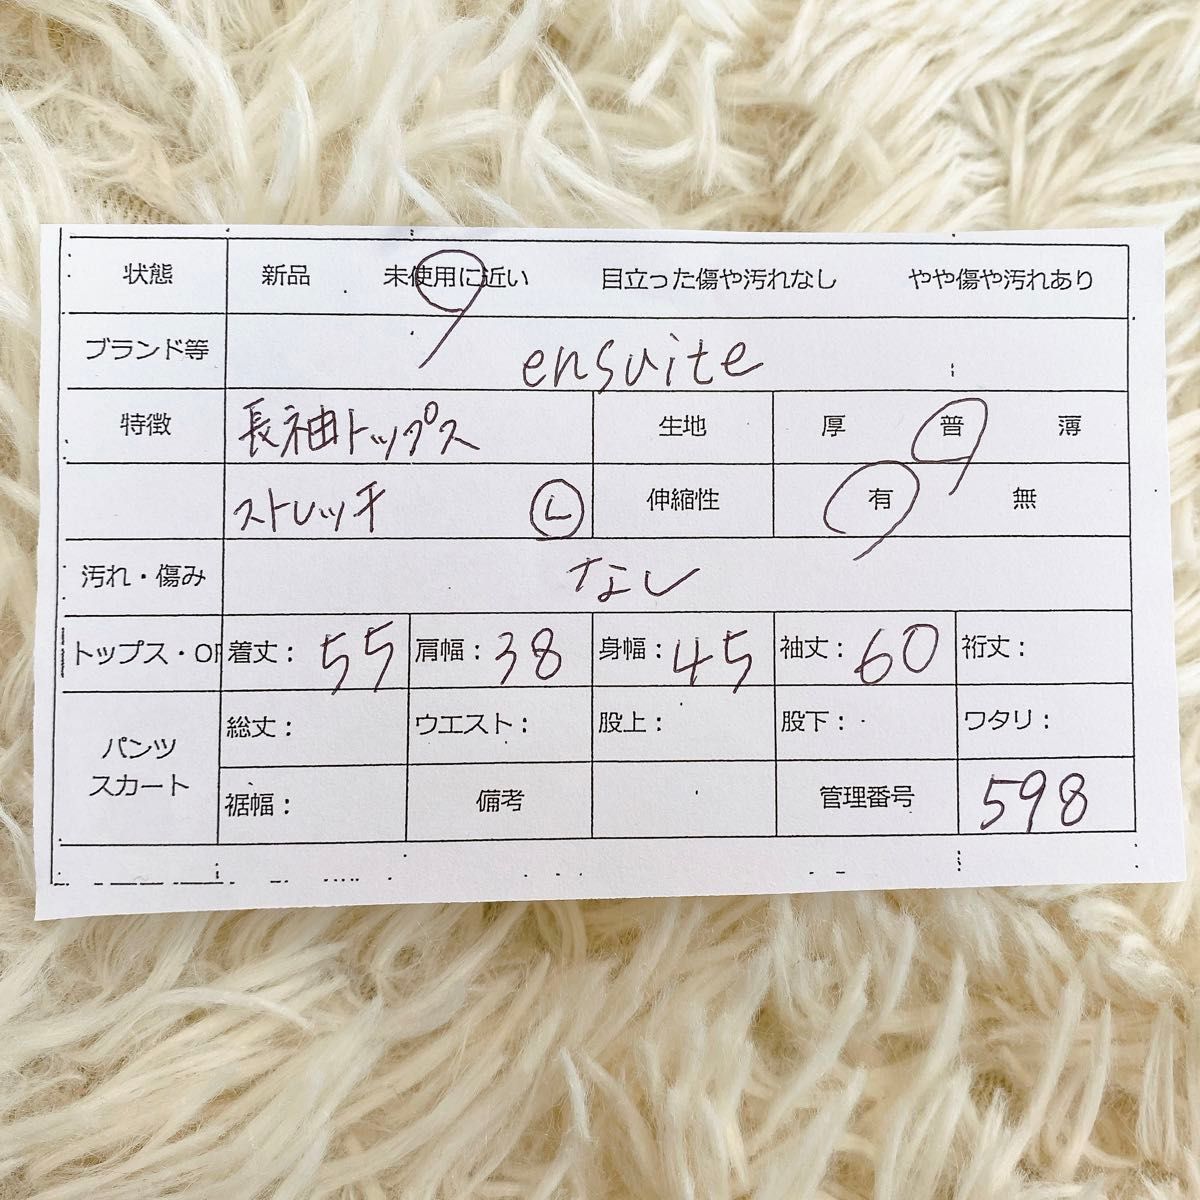 状態 新品 未使用に近い 目立った傷や汚れなし やや傷や汚れあり
ブランド等 ensuite
特徴 長袖トップス 生地 厚 普 薄
ストレッチ L 伸縮性 有 無
汚れ・傷み なし
トップス・OP 着丈： 55 肩幅： 38 身幅： 45 袖丈： 60 裄丈：
パンツ スカート 総丈： ウエスト： 股上： 股下： ワタリ：
裾幅： 備考 管理番号 598